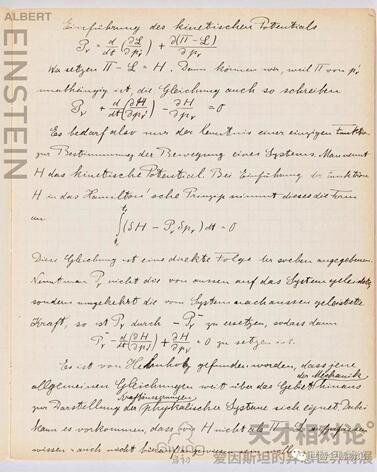 ALBERT
EINSTEIN
Einführung des kinetischen Potentials
P_ν = d/dt(∂L/∂p_ν') + ∂(Π − L)/∂p_ν
Wir setzen Π − L = H. Dann können wir, weil Π von p_ν'
unabhängig ist, die Gleichung auch so schreiben
P_ν + d/dt(∂H/∂p_ν') − ∂H/∂p_ν = 0
Es bedarf also nur der Kenntnis einer einzigen Funktion
zur Bestimmung der Bewegung eines Systems. Man nennt
H das kinetische Potential. Bei Einführung der Funktion
H in das Hamilton'sche Prinzip nimmt dieses die Form
an
∫(δH − P_ν δp_ν) dt = 0
Diese Gleichung ist eine direkte Folge der soeben angegebenen.
Nennt man P_ν nicht die von aussen auf das System geleistete,
sondern umgekehrt die vom System nach aussen geleistete
Kraft, so ist P_ν durch − P_ν zu ersetzen, sodass dann
P_ν − d/dt(∂H/∂p_ν') + ∂H/∂p_ν = 0 zu setzen ist.
Es ist von Helmholtz gefunden worden, dass jene
allgemeinen Gleichungen weit über das Gebiet der Mechanik hinaus
zur Darstellung der physikalischer Systeme sich eignet. Dabei
kann es vorkommen, dass wir H nicht als
wissen
天才相对论
爱因斯坦的异想世界特展